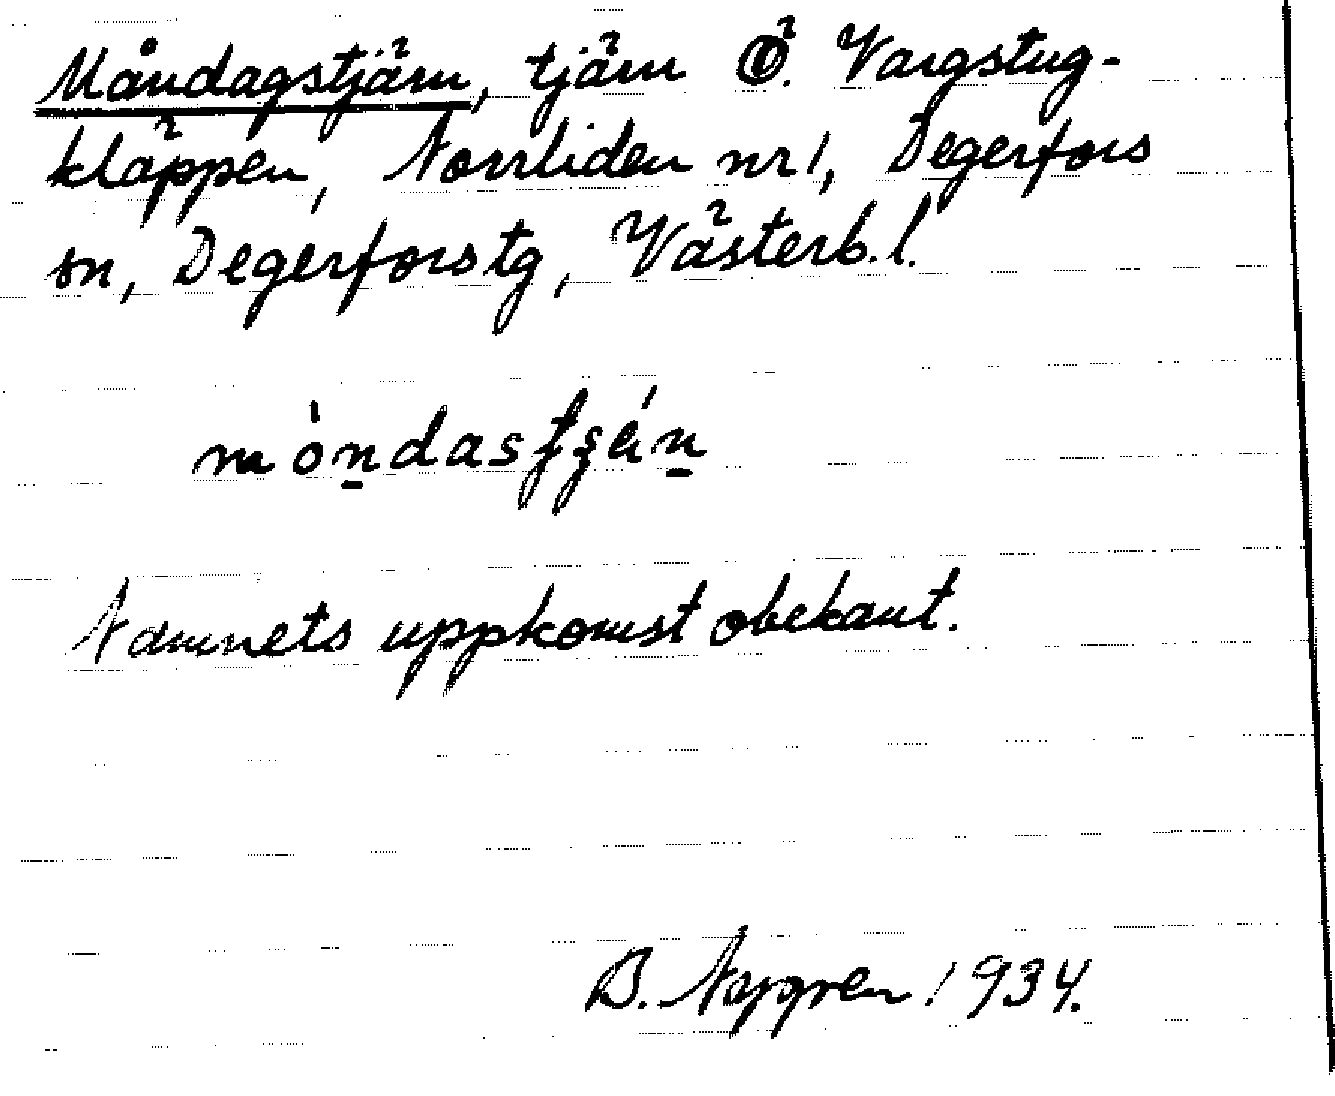 Måndagstjärn, tjärn Ö. Vargstug-
kläppen, Norrliden nr 1, Degerfors
sn, Degerfors tg, Västerb. l.
Namnets uppkomst obekant.
B. Nygren 1934.